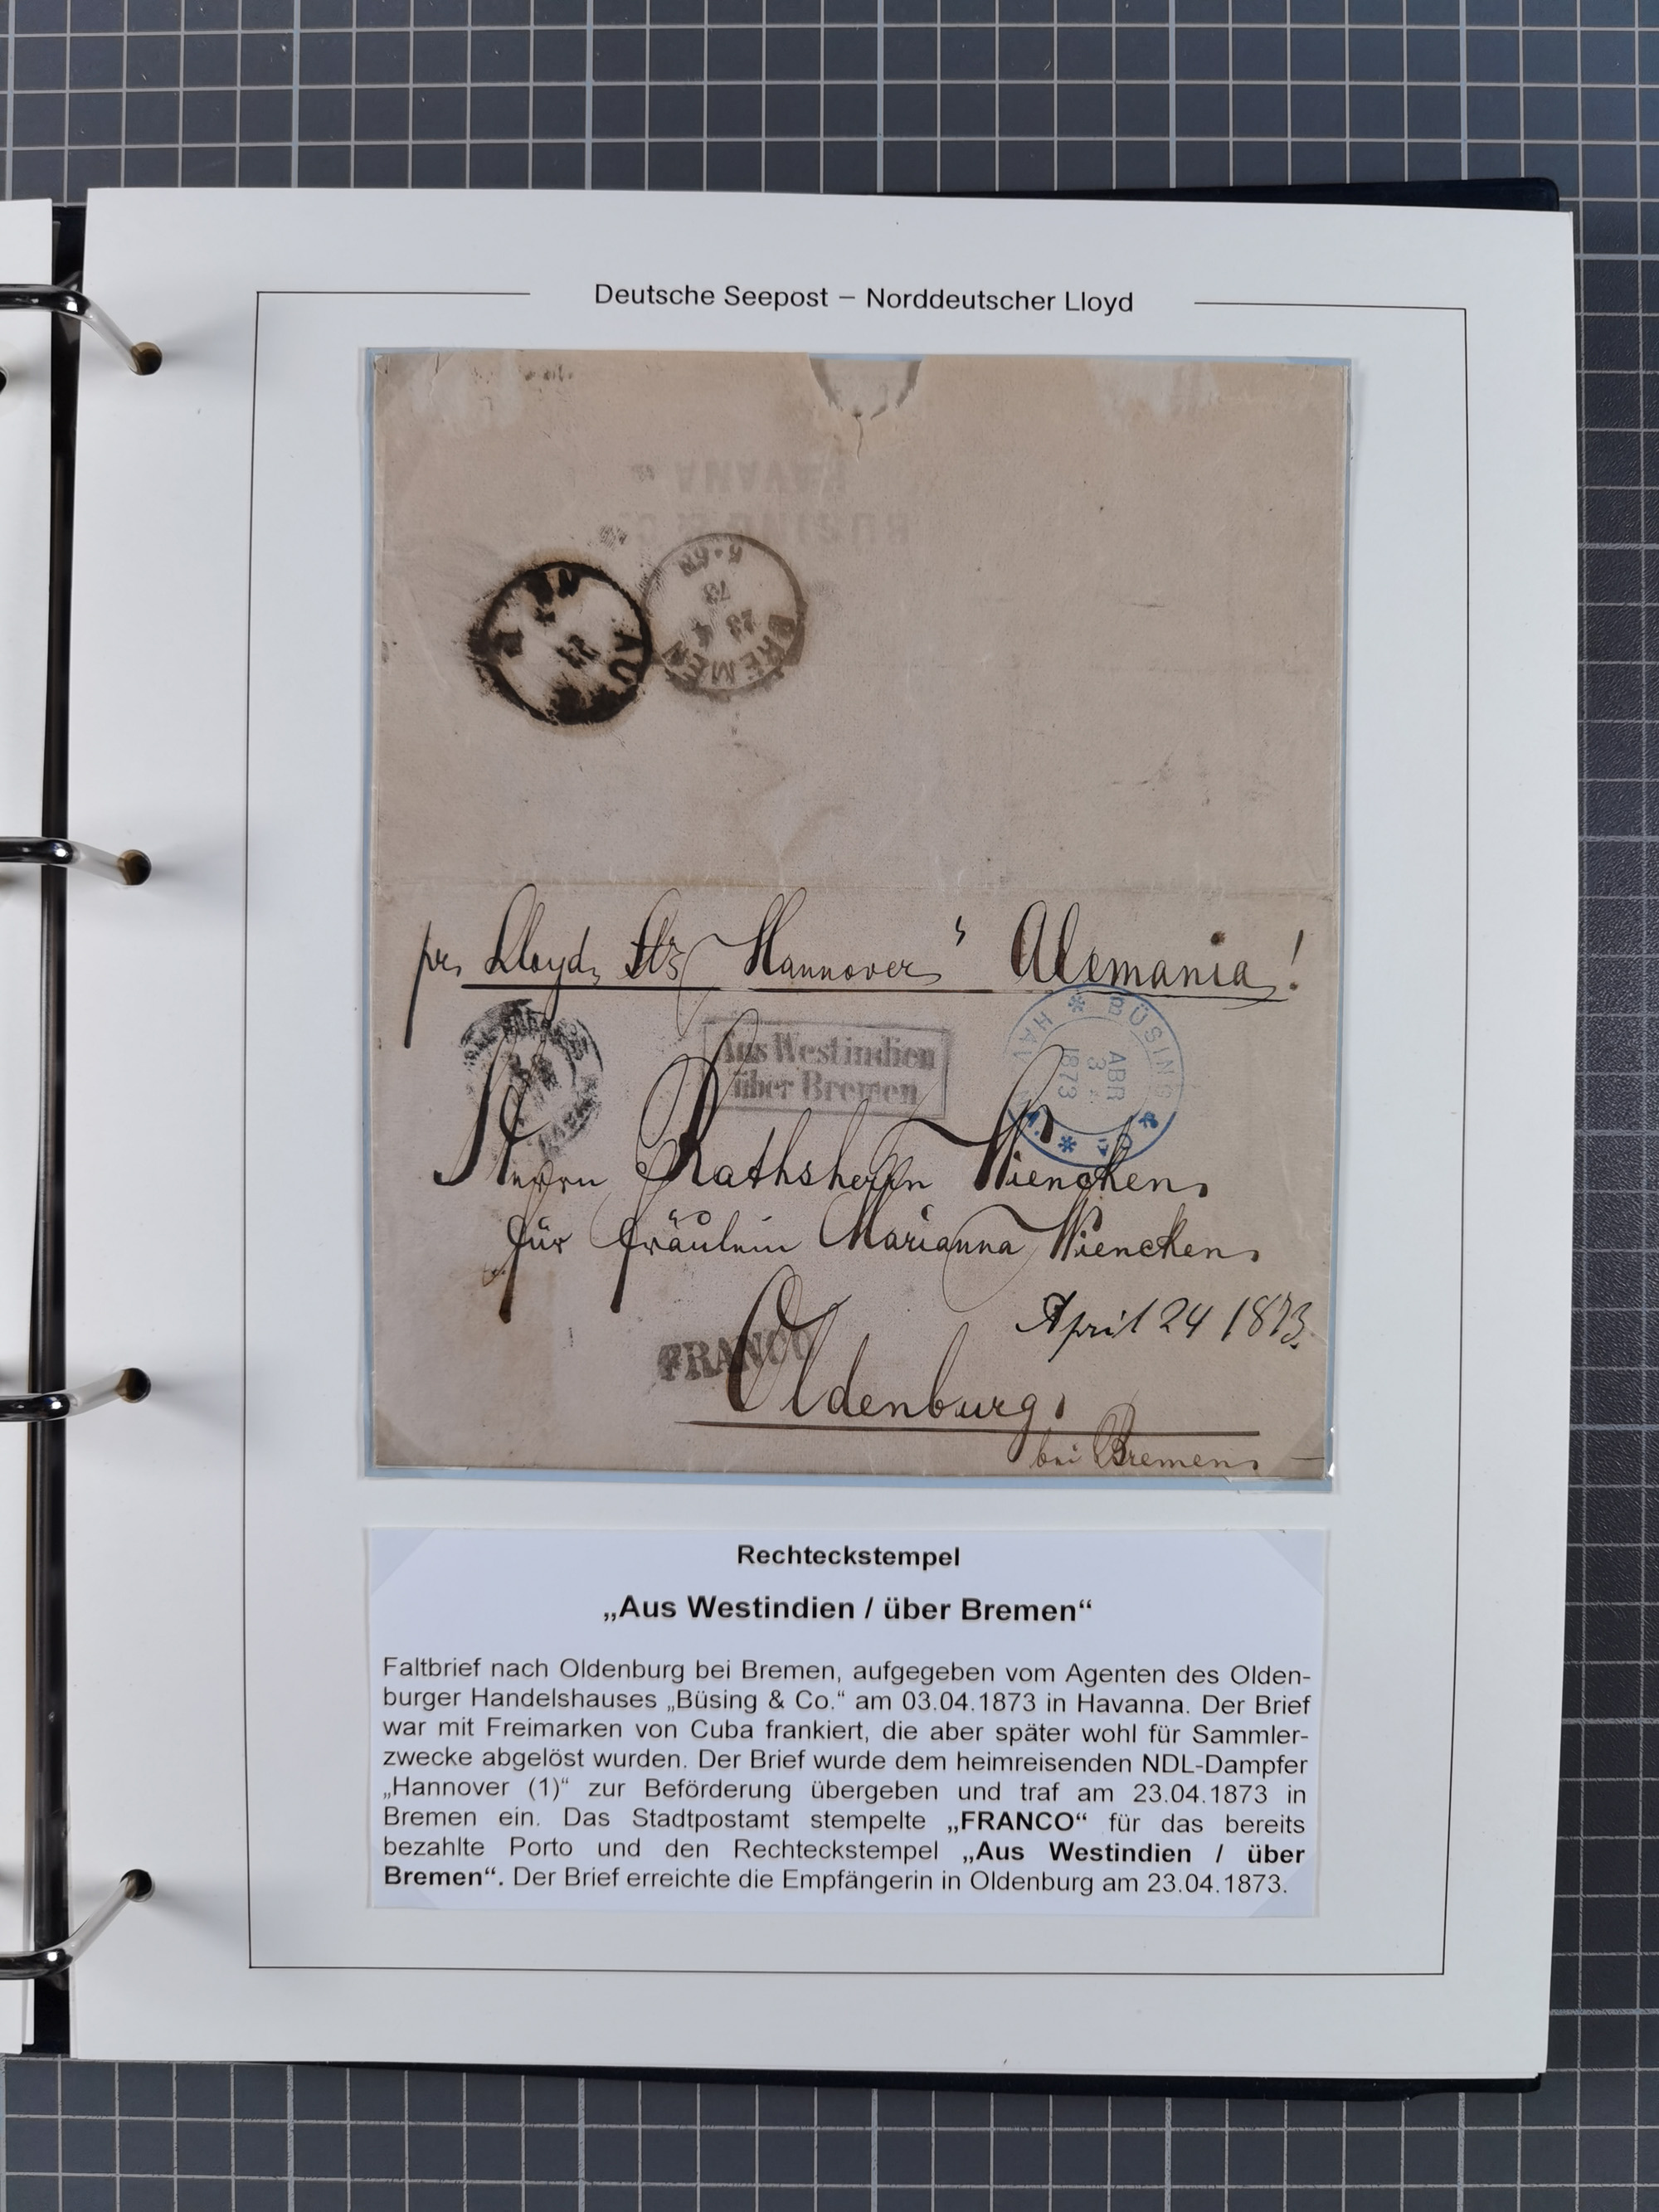 Deutsche Seepost – Norddeutscher Lloyd
HAVANA
BUSING & C
BREMEN
23 4
73
6-6N
AUS
pr. Lloyd Hannover" Alemania!
Aus Westindien
über Bremen
BÜSING & Co * HAVANA *
ABR
3
1873
Herrn Rathsherrn Wiencken
für Fräulein Marianna Wiencken
April 24 1873.
FRANCO
Oldenburg.
bei Bremen
Rechteckstempel
„Aus Westindien / über Bremen“
Faltbrief nach Oldenburg bei Bremen, aufgegeben vom Agenten des Olden-
burger Handelshauses „Büsing & Co.“ am 03.04.1873 in Havanna. Der Brief
war mit Freimarken von Cuba frankiert, die aber später wohl für Sammler-
zwecke abgelöst wurden. Der Brief wurde dem heimreisenden NDL-Dampfer
„Hannover (1)“ zur Beförderung übergeben und traf am 23.04.1873 in
Bremen ein. Das Stadtpostamt stempelte „FRANCO“ für das bereits
bezahlte Porto und den Rechteckstempel „Aus Westindien / über
Bremen“. Der Brief erreichte die Empfängerin in Oldenburg am 23.04.1873.